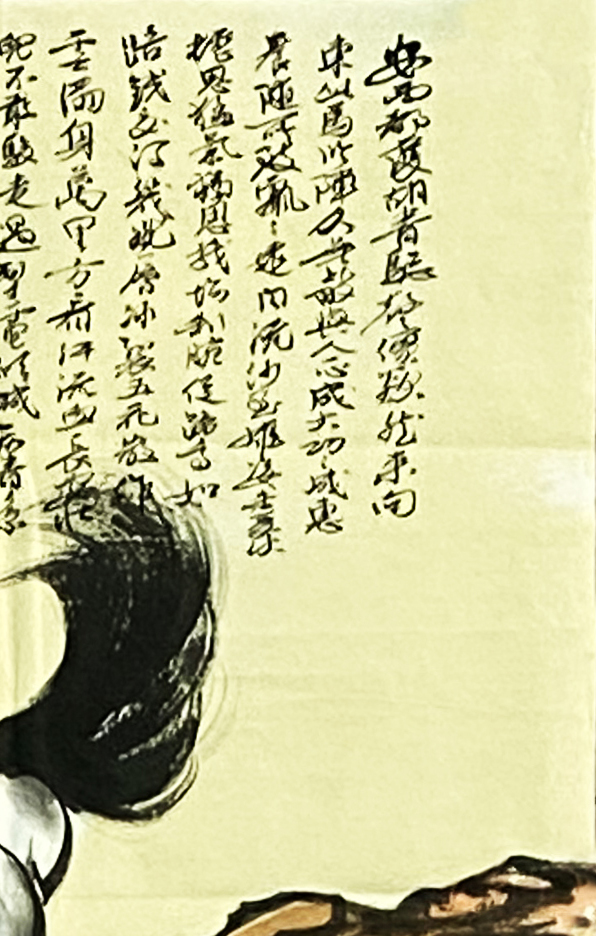 安西都護胡青驄聲價欻然來向
東此馬臨陣久無敵與人一心成大功々成惠
養隨所致飄々遠自流沙至雄姿未受伏
櫪恩猛氣猶思戰場利腕促蹄高如
踣鐵交河幾蹴層冰裂五花散作
雲滿身萬里方看汗流血長安壯
兒不敢騎走過掣電傾城知青絲